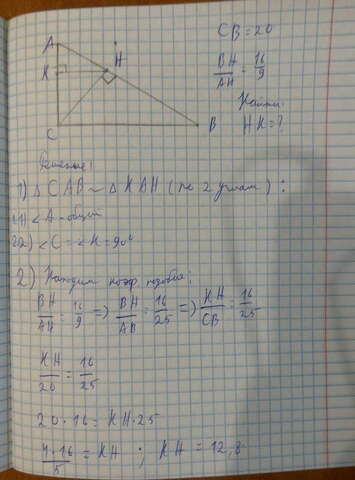 CB = 20
BH/AH = 16/9
Найти:
HK = ?
A
H
K
C
B
Решение:
1) △ CAB ~ △ KAH (по 2 углам):
1.1) ∠A - общий
∠C = ∠K = 90°
2) Найдём коэф подобия:
BH/AH = 16/9 => BH/AB = 16/25 => KH/CB = 16/25
KH/20 = 16/25
20 · 16 = KH · 25
4·16/5 = KH ; KH = 12,8